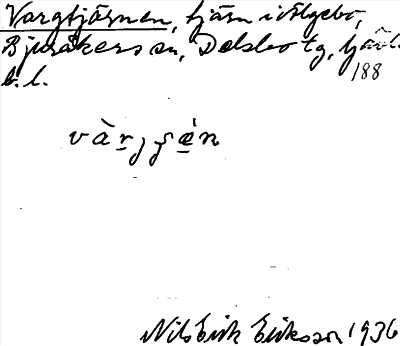 Vargtjärnen, tjärn i Älgebo,
Bjuråkers sn, Delsbo tg, Gävl.
b. l. 188
vàrjʃän
Nils Erik Eriksson 1936